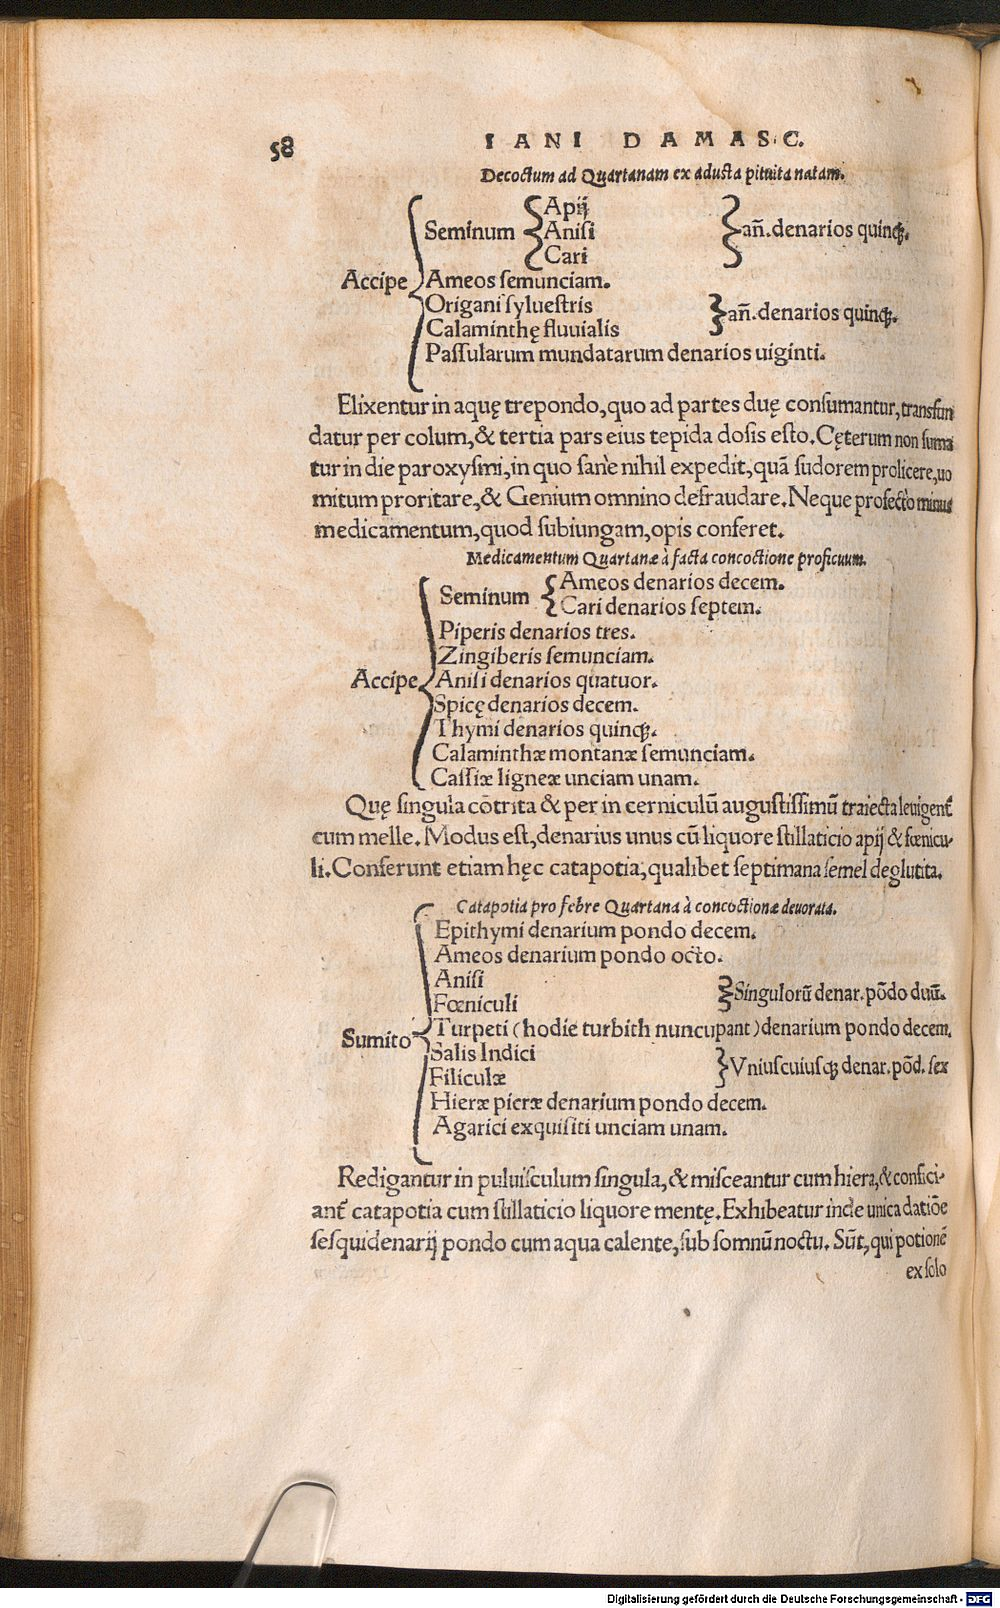 58
IANI DAMASC.
Decoctum ad Quartanam ex adusta pituita natam.
Accipe
Seminum
Apij
Anisi
Cari
añ. denarios quinq;.
Ameos semunciam.
Origani syluestris
Calaminthę fluuialis
añ. denarios quinq;.
Passularum mundatarum denarios uiginti.
Elixentur in aquę trepondo, quo ad partes duę consumantur, transfun
datur per colum, & tertia pars eius tepida dosis esto. Cęterum non suma
tur in die paroxysmi, in quo sanè nihil expedit, quã sudorem prolicere, uo
mitum proritare, & Genium omnino defraudare. Neque profectò minus
medicamentum, quod subiungam, opis conferet.
Medicamentum Quartanæ à facta concoctione proficuum.
Accipe
Seminum
Ameos denarios decem.
Cari denarios septem.
Piperis denarios tres.
Zingiberis semunciam.
Anisi denarios quatuor.
Spicę denarios decem.
Thymi denarios quinq;.
Calaminthæ montanæ semunciam.
Cassiæ ligneæ unciam unam.
Quę singula cõtrita & per in cerniculũ augustissimũ traiecta leuigent᷑
cum melle. Modus est, denarius unus cũ liquore stillaticio apij & fœnicu-
li. Conferunt etiam hęc catapotia, qualibet septimana semel deglutita.
Catapotia pro febre Quartana à concoctionæ deuorata.
Sumito
Epithymi denarium pondo decem.
Ameos denarium pondo octo.
Anisi
Fœniculi
Singulorũ denar. põdo duũ.
Turpeti (hodie turbith nuncupant) denarium pondo decem.
Salis Indici
Filiculæ
Vniuscuiusq; denar. põd. sex
Hieræ picræ denarium pondo decem.
Agarici exquisiti unciam unam.
Redigantur in puluisculum singula, & misceantur cum hiera, & confici-
ant᷑ catapotia cum stillaticio liquore mentę. Exhibeatur inde unica datiõe
sesquidenarij pondo cum aqua calente, sub somnũ noctu. Sũt, qui potionẽ
ex solo
Digitalisierung gefördert durch die Deutsche Forschungsgemeinschaft - DFG